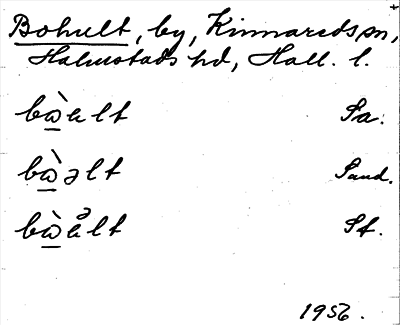 Bohult, by, Kinnareds sn,
Halmstads hd, Hall. l.
bὼult Sa.
bὼəlt Sand.
St.
1956.